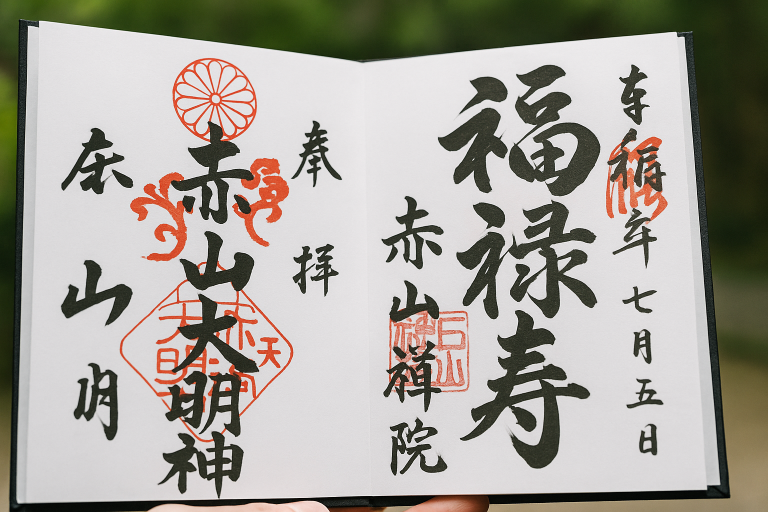 七月五日
福禄寿
赤山禅院
奉拝
赤山大明神
天
山明